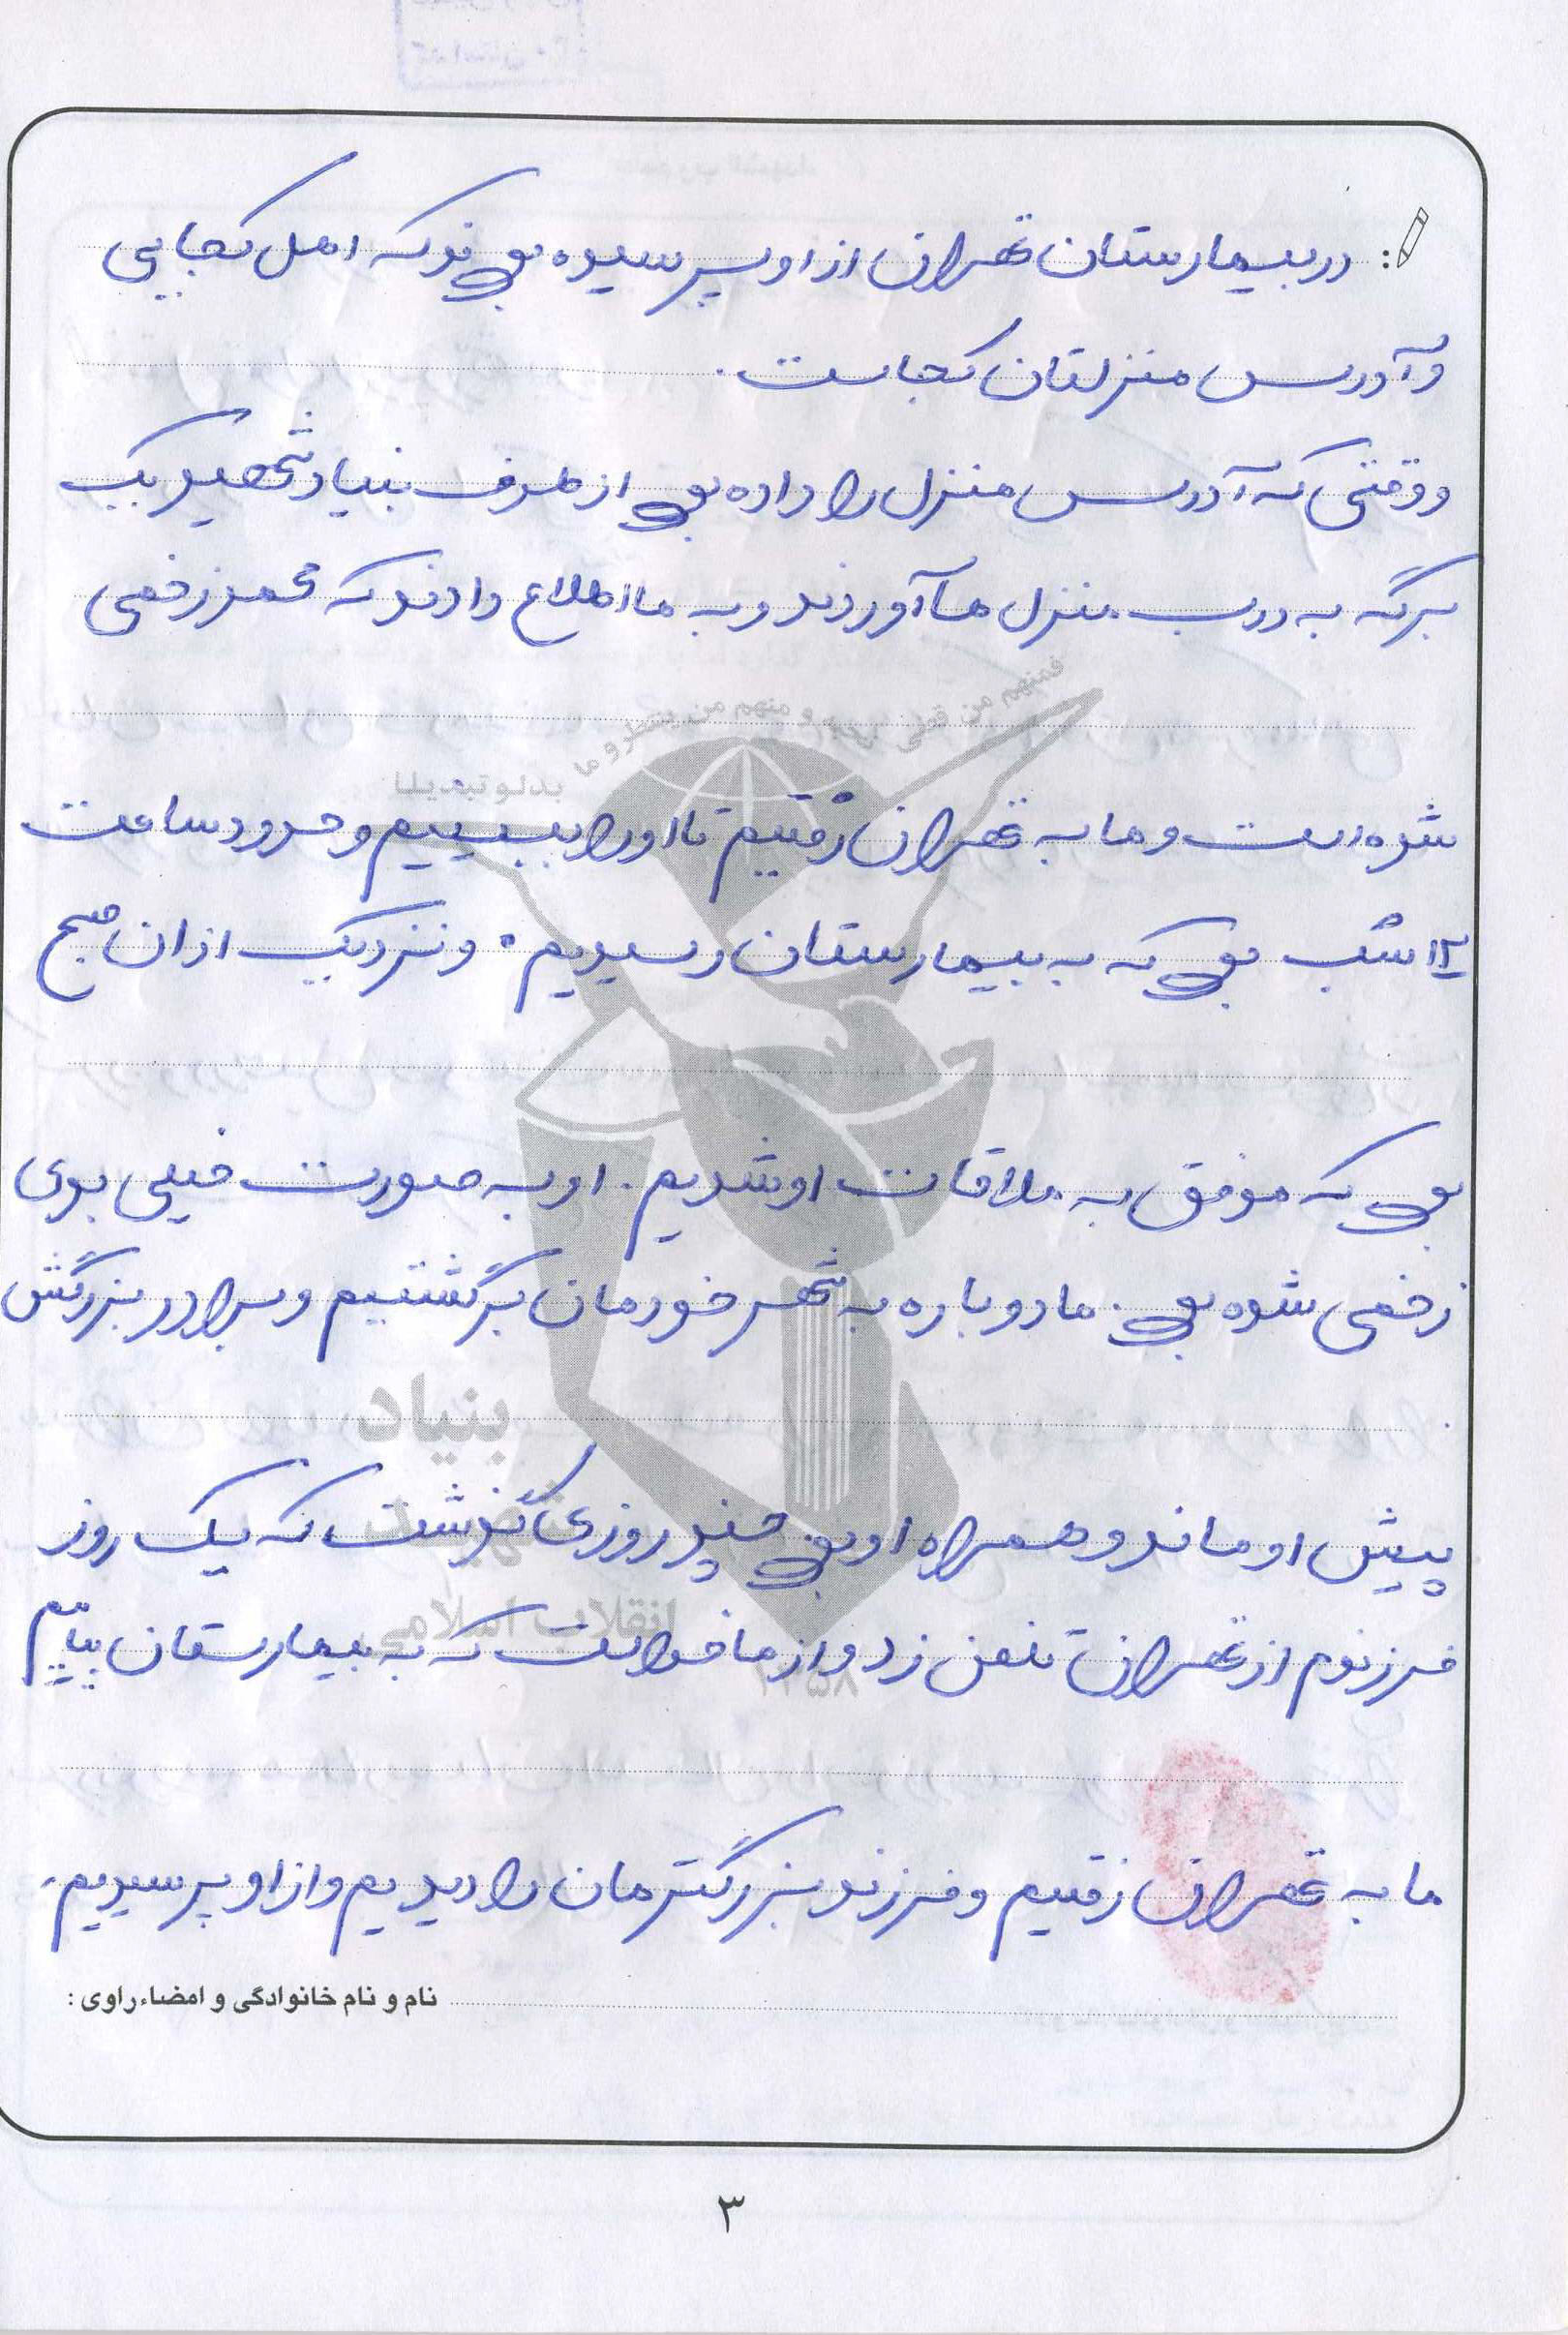 در بیمارستان تهران از او پرسیده بودند که اهل کجایی
و آدرس منزلتان کجاست.
و وقتی که آدرس منزل را داده بود از طرف بنیاد شهید یک
برگه به درب منزل ما آوردند و به ما اطلاع دادند که محمد زخمی
فمنهم من قضی نحبه و منهم من ینتظر و ما
بدلو تبدیلا
شده است و ما به تهران رفتیم تا او را ببینیم و حدود ساعت
۱۲ شب بود که به بیمارستان رسیدیم. و نزدیک اذان صبح
بود که موفق به ملاقات او شدیم. او به صورت خیلی بدی
زخمی شده بود. ما دوباره به شهر خودمان برگشتیم و برادر بزرگش
بنیاد
شهید
پیش او ماند و همراه او بود چند روزی گذشت که یک روز
انقلاب اسلامی
فرزندم از تهران تلفن زد و از ما خواست که به بیمارستان بیاییم
۱۳۵۸
ما به تهران رفتیم و فرزند بزرگترمان را دیدیم و از او پرسیدیم.
نام و نام خانوادگی و امضاء راوی :
۳